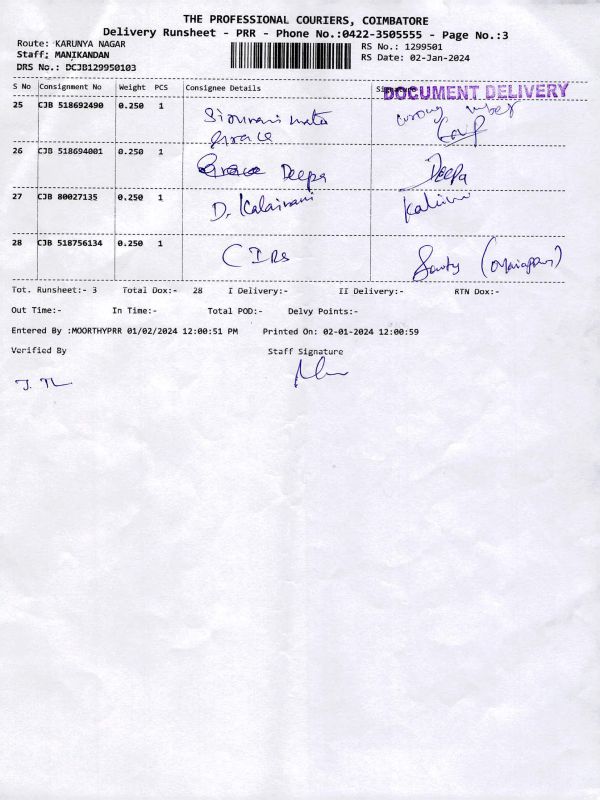 THE PROFESSIONAL COURIERS, COIMBATORE
Delivery Runsheet - PRR - Phone No.:0422-3505555 - Page No.:3
Route: KARUNYA NAGAR
Staff; MANIKANDAN
DRS No.: DCJB129950103
RS No.: 1299501
RS Date: 02-Jan-2024
S No Consignment No Weight PCS Consignee Details
DOCUMENT DELIVERY
25 CJB 518692490 0.250 1 Grace wrong
26 CJB 518694001 0.250 1 Grace Deepa Deepa
27 CJB 80027135 0.250 1 D. Kalaivani
28 CJB 518756134 0.250 1
Tot. Runsheet:- 3 Total Dox:- 28 I Delivery:- II Delivery:- RTN Dox:-
Out Time:- In Time:- Total POD:- Delvy Points:-
Entered By :MOORTHYPRR 01/02/2024 12:00:51 PM Printed On: 02-01-2024 12:00:59
Verified By Staff Signature